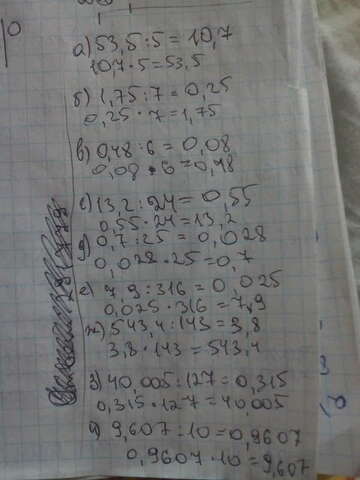 а) 53,5 : 5 = 10,7
10,7 · 5 = 53,5
б) 1,75 : 7 = 0,25
0,25 · 7 = 1,75
в) 0,48 : 6 = 0,08
0,08 · 6 = 0,48
с) 13,2 : 24 = 0,55
0,55 · 24 = 13,2
д) 0,7 : 25 = 0,028
0,028 · 25 = 0,7
е) 7,9 : 316 = 0,025
0,025 · 316 = 7,9
ж) 543,4 : 143 = 3,8
3,8 · 143 = 543,4
з) 40,005 : 127 = 0,315
0,315 · 127 = 40,005
и) 9,607 : 10 = 0,9607
0,9607 · 10 = 9,607